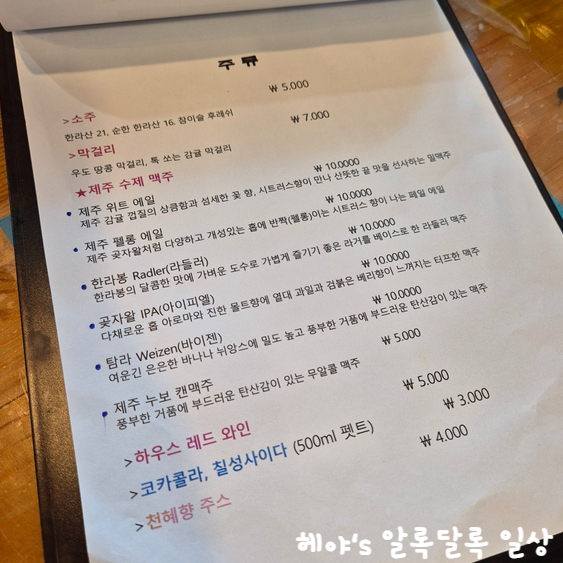 주 류
>소주 ₩ 5.000
한라산 21, 순한 한라산 16. 참이슬 후레쉬
>막걸리 ₩ 7.000
우도 땅콩 막걸리, 톡 쏘는 감귤 막걸리
★제주 수제 맥주
• 제주 위트 에일 ₩ 10.0000
제주 감귤 껍질의 상큼함과 섬세한 꽃 향, 시트러스향이 만나 산뜻한 끝 맛을 선사하는 밀맥주
• 제주 펠롱 에일 ₩ 10.0000
제주 곶자왈처럼 다양하고 개성있는 홉에 반짝(펠롱)이는 시트러스 향이 나는 페일 에일
• 한라봉 Radler(라들러) ₩ 10.0000
한라봉의 달콤한 맛에 가벼운 도수로 가볍게 즐기기 좋은 라거를 베이스로 한 라들러 맥주
• 곶자왈 IPA(아이피엘) ₩ 10.0000
다채로운 홉 아로마와 진한 몰트향에 열대 과일과 검붉은 베리향이 느껴지는 터프한 맥주
• 탐라 Weizen(바이젠) ₩ 10.0000
여운긴 은은한 바나나 뉘앙스에 밀도 높고 풍부한 거품에 부드러운 탄산감이 있는 맥주
• 제주 누보 캔맥주 ₩ 5.000
풍부한 거품에 부드러운 탄산감이 있는 무알콜 맥주
>하우스 레드 와인 ₩ 5.000
>코카콜라, 칠성사이다 (500ml 펫트) ₩ 3.000
>천혜향 주스 ₩ 4.000
헤야's 알록달록 일상